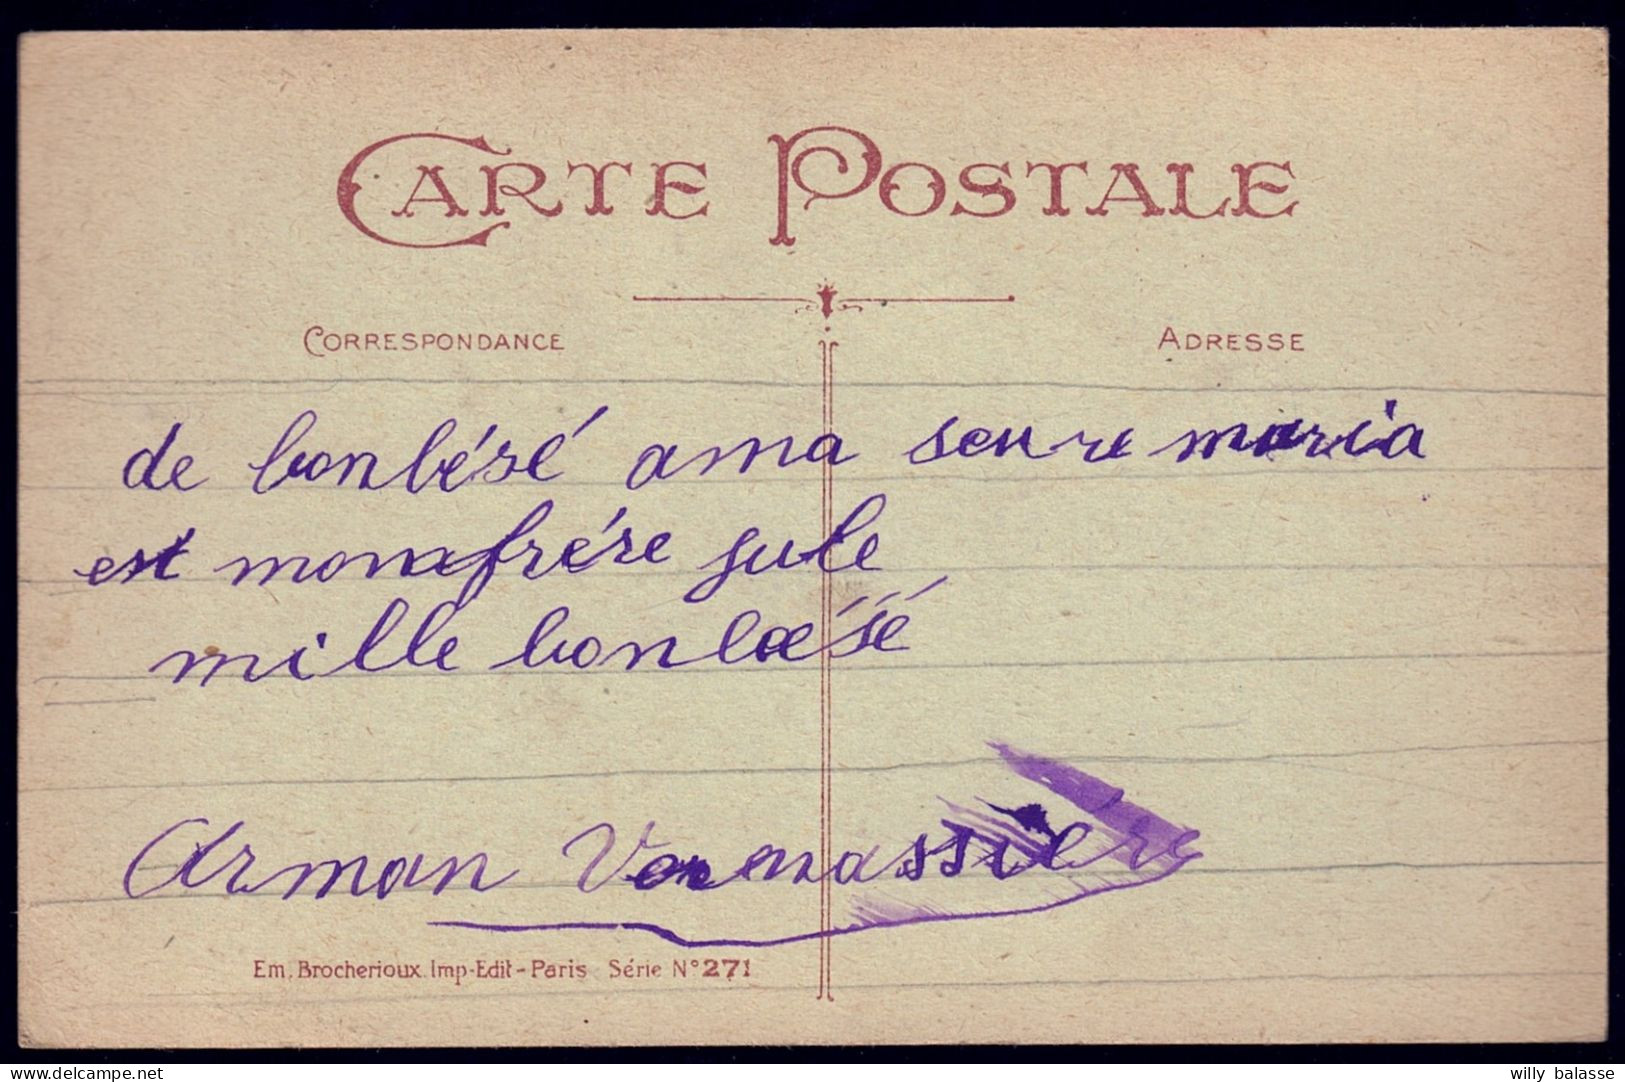 CARTE POSTALE
CORRESPONDANCE
ADRESSE
de bonbésé ama seure maria
est mon frére jule
mille bonbésé
Arman
Em. Brocherioux. Imp-Edit-Paris Série N° 271
delcampe.net
willy balasse